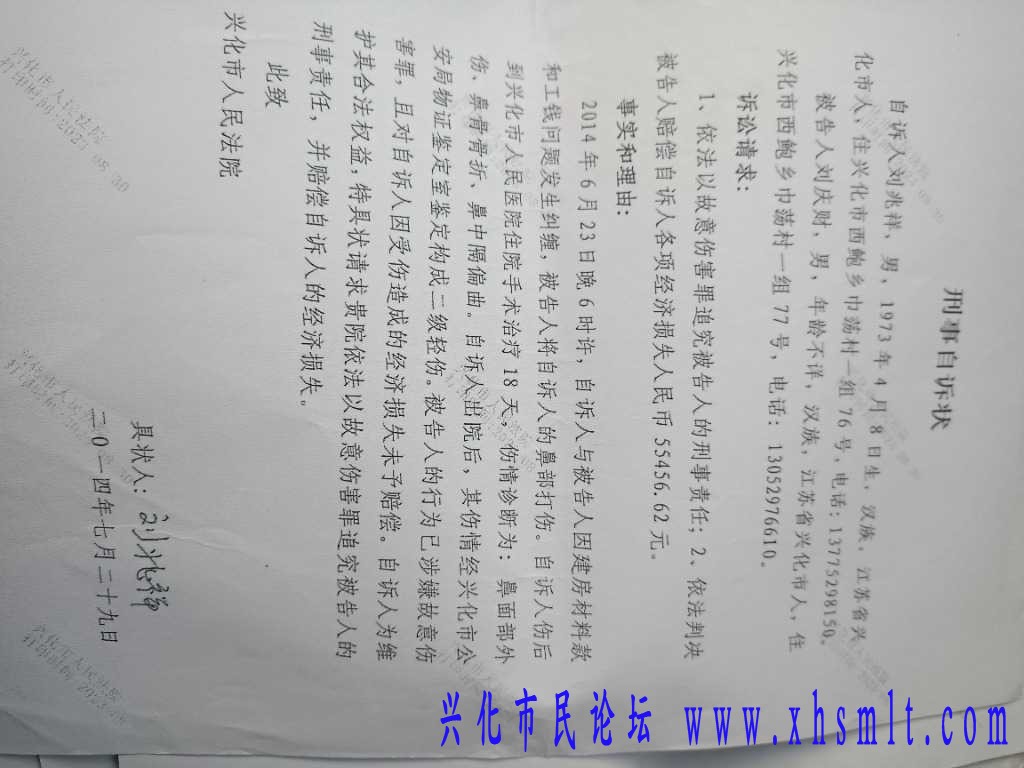 刑事自诉状
自诉人刘兆祥，男，1973年4月8日生，汉族，江苏省兴
化市人，住兴化市西鲍乡巾荡村一组76号，电话：13775298150。
被告人刘庆财，男，年龄不详，汉族，江苏省兴化市人，住
兴化市西鲍乡巾荡村一组77号，电话：13052976610。
诉讼请求：
1、依法以故意伤害罪追究被告人的刑事责任；2、依法判决
被告人赔偿自诉人各项经济损失人民币55456.62元。
事实和理由：
2014年6月23日晚6时许，自诉人与被告人因建房材料款
和工钱问题发生纠缠，被告人将自诉人的鼻部打伤。自诉人伤后
到兴化市人民医院住院手术治疗18天，伤情诊断为：鼻面部外
伤、鼻骨骨折、鼻中隔偏曲。自诉人出院后，其伤情经兴化市公
安局物证鉴定室鉴定构成二级轻伤。被告人的行为已涉嫌故意伤
害罪，且对自诉人因受伤造成的经济损失未予赔偿。自诉人为维
护其合法权益，特具状请求贵院依法以故意伤害罪追究被告人的
刑事责任，并赔偿自诉人的经济损失。
此致
兴化市人民法院
具状人：刘兆祥
二0一四年七月二十九日
兴化市人民法院
打印时间：2023-08-30
兴化市民论坛 www.xhsmlt.com